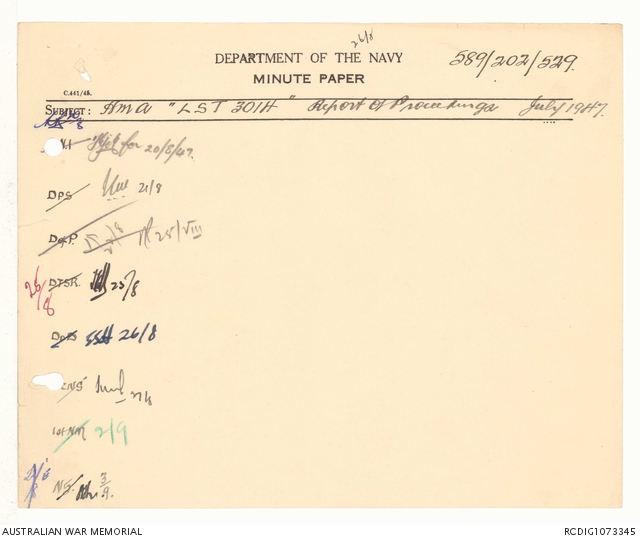 26/8
DEPARTMENT OF THE NAVY
MINUTE PAPER
589/202/529.
C.441/45.
SUBJECT: HMA "LST 3014" Report of Proceedings July 1947.
for 20/8/47.
DPS 21/8
D of P. 27/8 25/VIII
26/8
DTSR. 25/8
SSH 26/8
27/8
1st NM 2/9
NS. 3/9.
AUSTRALIAN WAR MEMORIAL
RCDIG1073345